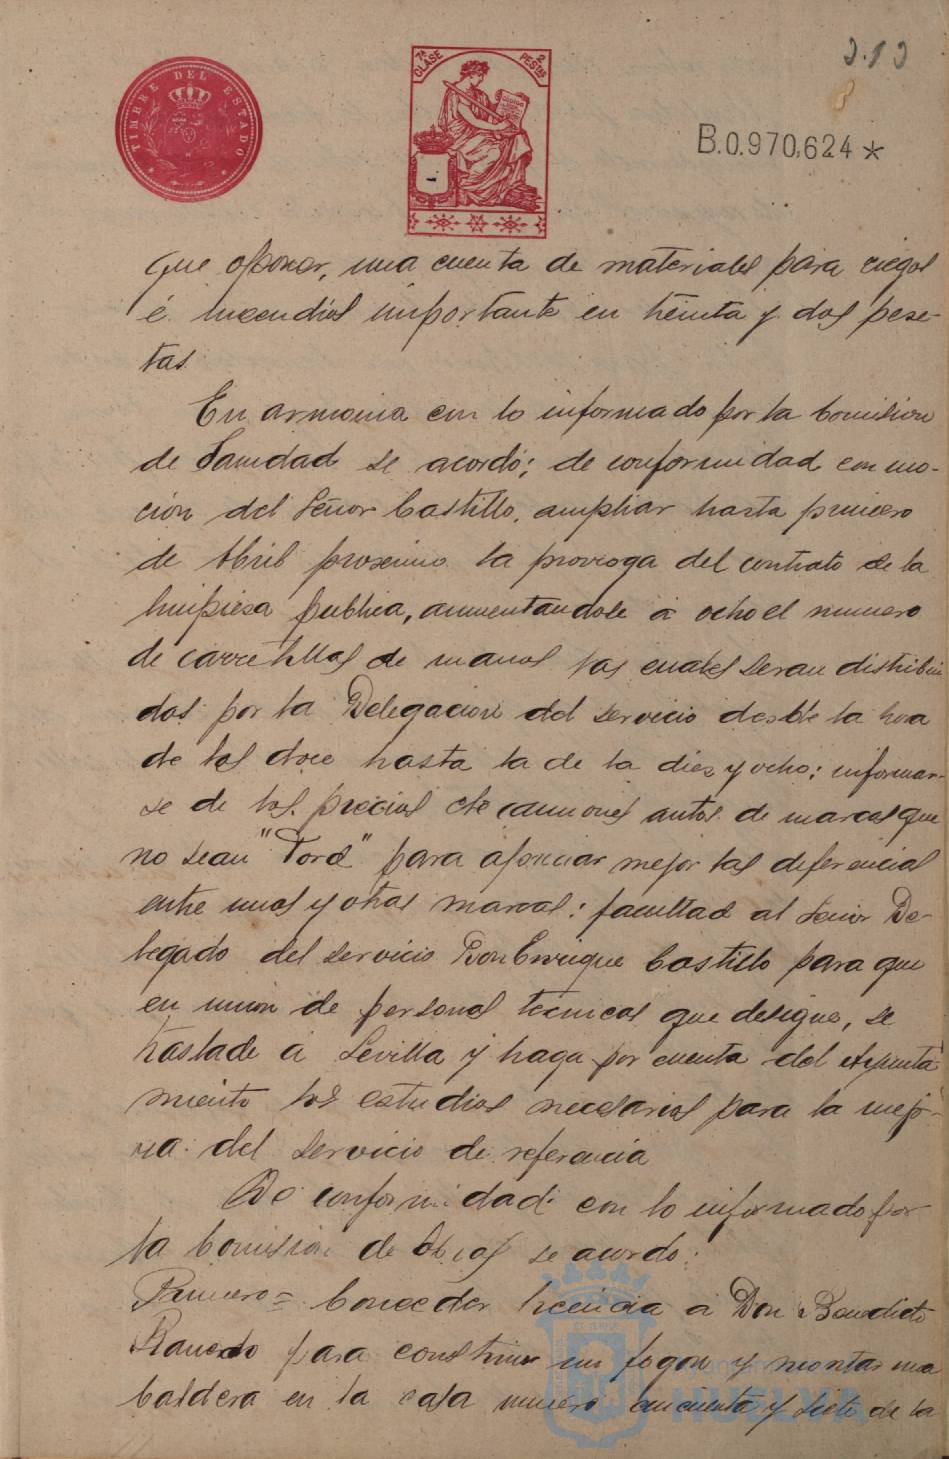 212
TIMBRE DEL ESTADO
7ª CLASE
2 PESTAS
B.0.970,624*
que oponer, una cuenta de materiales para riegos
é incendios importante en treinta y dos pese-
tas.
En armonia con lo informado por la Comision
de Sanidad se acordó; de conformidad con mo-
ción del Señor Castillo, ampliar hasta primero
de Abril proximo la prorroga del contrato de la
limpieza publica, aumentandole á ocho el numero
de carretillas de manos las cuales seran distribui
das por la Delegacion del servicio desde la hora
de las doce hasta la de la diez y ocho; informar-
se de los precios de camiones autos de marcas que
no sean "Ford" para apreciar mejor las diferencias
entre unas y otras marcas: facultad al Señor De-
legado del servicio Don Enrique Castillo para que
en union de personas tecnicas que designe, se
traslade á Sevilla y haga por cuenta del Ayunta-
miento los estudios necesarios para la mejo-
ra del servicio de referencia
De conformidad con lo informado por
la Comision de Obras se acordo:
Primero = Conceder licencia á Don Benedicto
para construir un fogon y montar una
caldera en la casa numero cincuenta y siete de la
Ayuntamiento
HUELVA